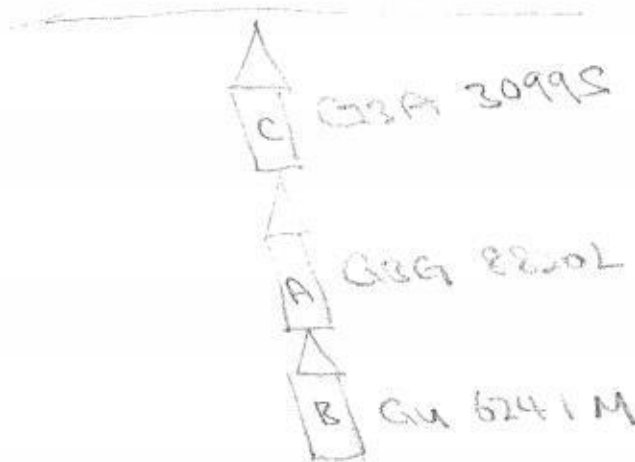 C GBA 3099S
A GBG 8820L
B GU 6241M